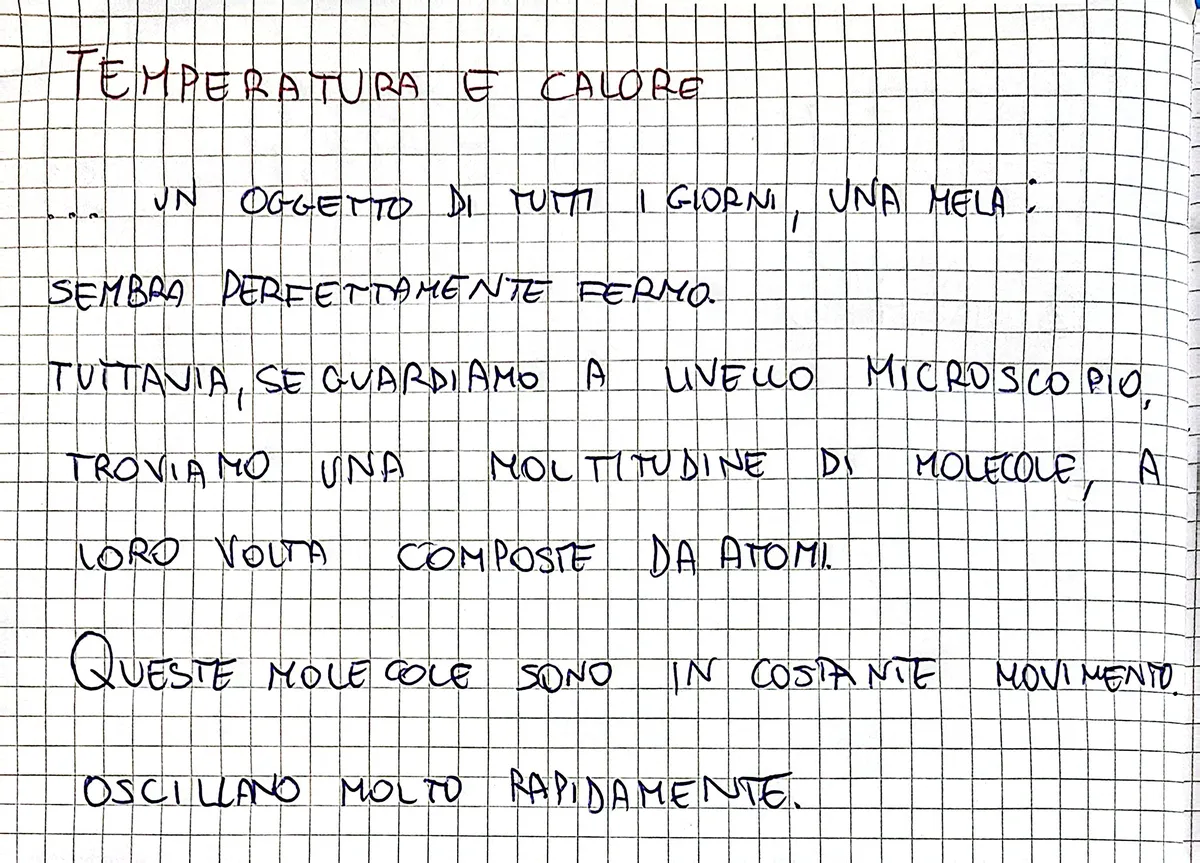 TEMPERATURA E CALORE
... UN OGGETTO DI TUTTI I GIORNI, UNA MELA:
SEMBRA PERFETTAMENTE FERMO.
TUTTAVIA, SE GUARDIAMO A LIVELLO MICROSCOPIO,
TROVIAMO UNA MOLTITUDINE DI MOLECOLE, A
LORO VOLTA COMPOSTE DA ATOMI.
QUESTE MOLECOLE SONO IN COSTANTE MOVIMENTO.
OSCILLANO MOLTO RAPIDAMENTE.